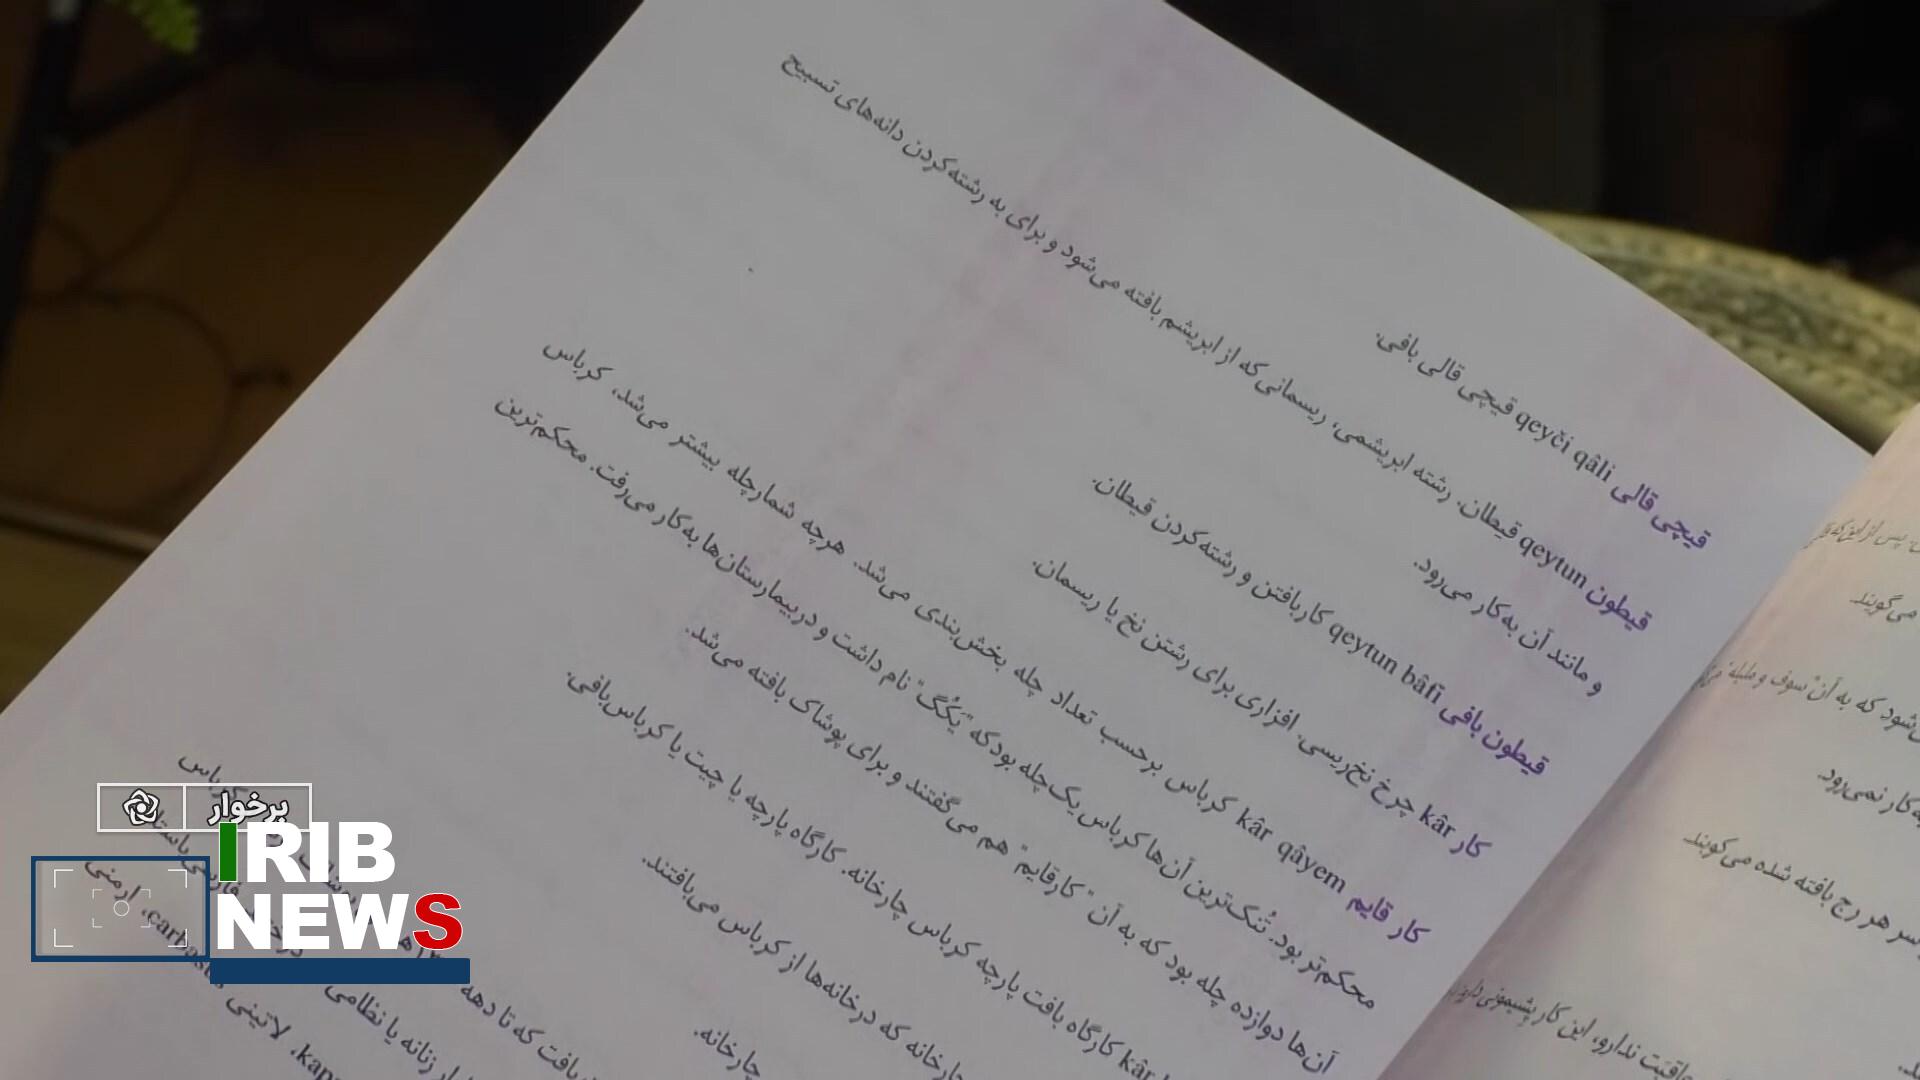 قیچی قالی qeyči qâli قیچی قالی بافی.
قیطون qeytun قیطان. رشته ابریشمی، ریسمانی که از ابریشم بافته می‌شود و برای به رشته‌کردن دانه‌های تسبیح
و مانند آن به‌کار می‌رود.
قیطون بافی qeytun bâfi کار بافتن و رشته‌کردن قیطان.
کار kâr چرخ نخ‌ریسی. افزاری برای رشتن نخ یا ریسمان.
کار قایم kâr qâyem کرباس برحسب تعداد چله بخش‌بندی می‌شد. هرچه شمار چله بیشتر می‌شد، کرباس
محکم‌تر بود. تُنک‌ترین آن‌ها کرباس یک‌چله بود که "یَکُگ" نام داشت و در بیمارستان‌ها به‌کار می‌رفت. محکم‌ترین
آن‌ها دوازده چله بود که به آن "کارقایم" هم می‌گفتند و برای پوشاک بافته می‌شد.
kâr کارگاه بافت پارچه کرباس چارخانه. کارگاه پارچه یا چیت یا کرباس‌بافی.
چارخانه که در خانه‌ها از کرباس می‌بافتند.
چارخانه.
کرباس
بافت که تا دهه
زنانه یا نظامی
ارمنی
لاتینی
پس از این که
می‌گویند.
می‌شود که به آن "سوف و ملیله"
به‌کار نمی‌رود
سر هر رج بافته شده می‌گویند.
عاقبَت ندارو، این کار پشیمونی دارد
برخوار
IRIB
NEWS